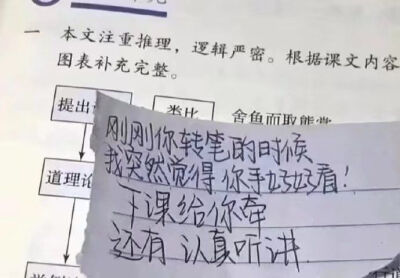 一 本文注重推理，逻辑严密。根据课文内容
图表补充完整。
提出
类比
舍鱼而取熊掌
道理论
刚刚你转笔的时候
我突然觉得你手好好看！
下课给你牵
还有 认真听讲